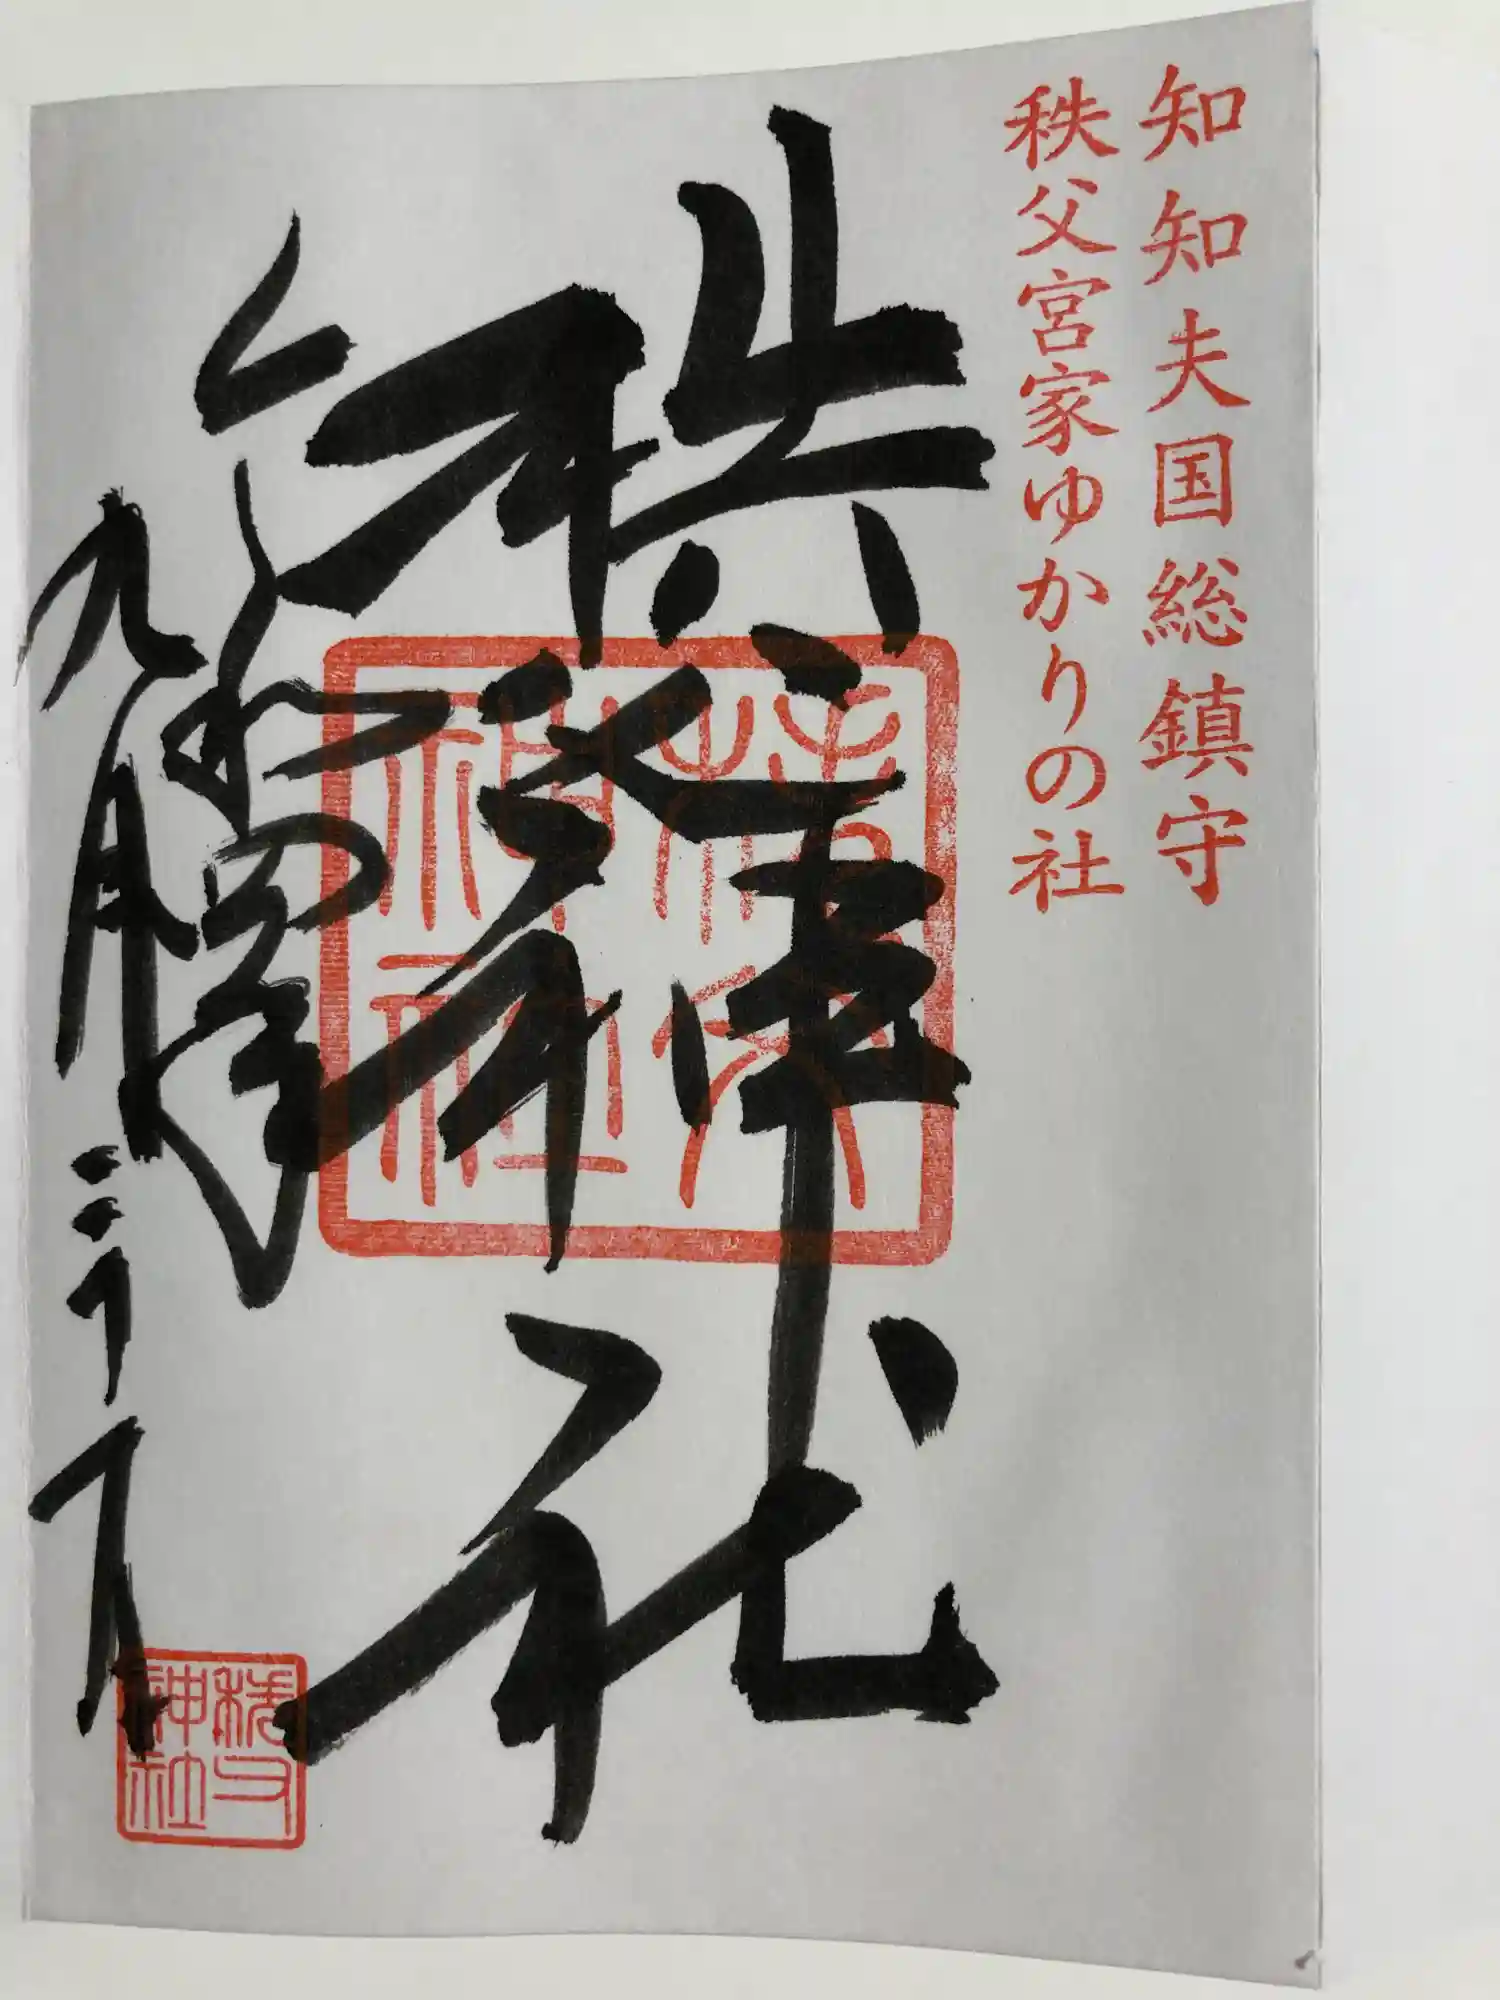 知知夫国総鎮守
秩父宮家ゆかりの社
秩父神社
秩父神社
九月二十
秩父神社